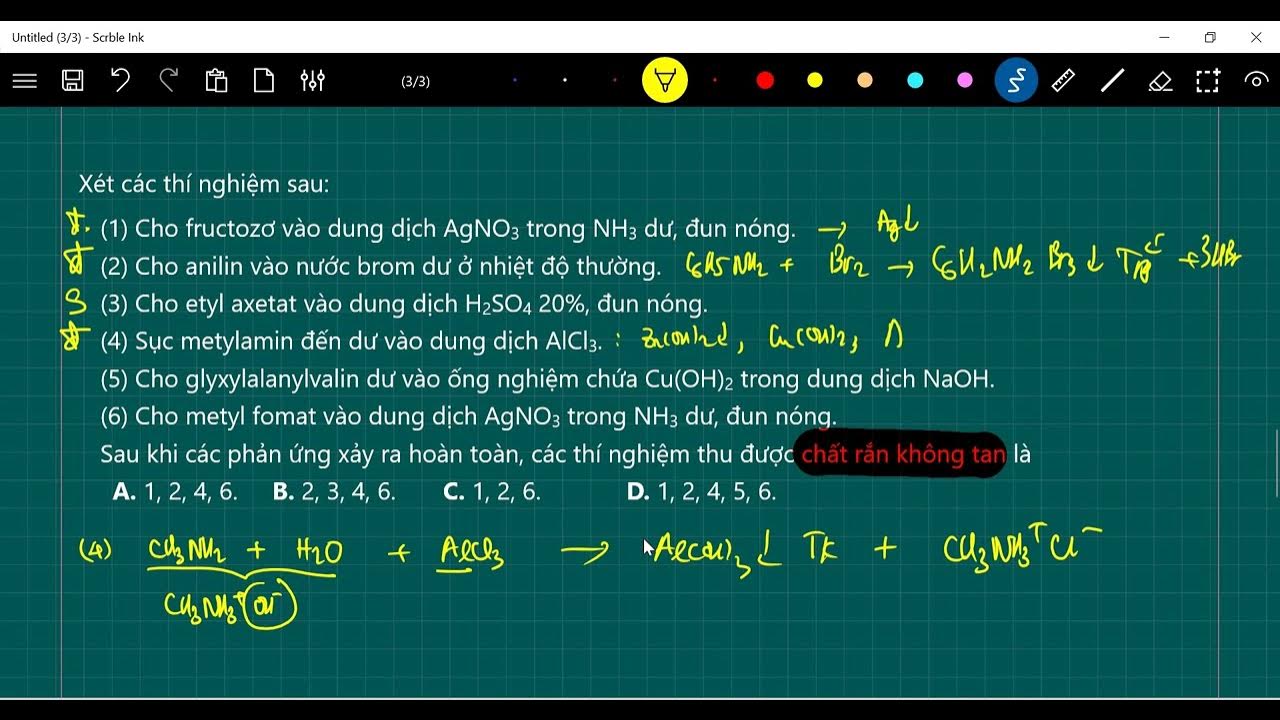 Untitled (3/3) - Scrble Ink
(3/3)
Xét các thí nghiệm sau:
(1) Cho fructozơ vào dung dịch AgNO₃ trong NH₃ dư, đun nóng. → Ag↓
(2) Cho anilin vào nước brom dư ở nhiệt độ thường. C6H5NH2 + Br2 → C6H2NH2Br3↓ + 3HBr
S (3) Cho etyl axetat vào dung dịch H₂SO₄ 20%, đun nóng.
(4) Sục metylamin đến dư vào dung dịch AlCl₃. : Zn(OH)2↓, Cu(OH)2,
(5) Cho glyxylalanylvalin dư vào ống nghiệm chứa Cu(OH)₂ trong dung dịch NaOH.
(6) Cho metyl fomat vào dung dịch AgNO₃ trong NH₃ dư, đun nóng.
Sau khi các phản ứng xảy ra hoàn toàn, các thí nghiệm thu được chất rắn không tan là
A. 1, 2, 4, 6. B. 2, 3, 4, 6. C. 1, 2, 6. D. 1, 2, 4, 5, 6.
(4) CH3NH2 + H2O + AlCl3 → Al(OH)3↓ TK + CH3NH3⁺Cl⁻
CH3NH3⁺OH⁻